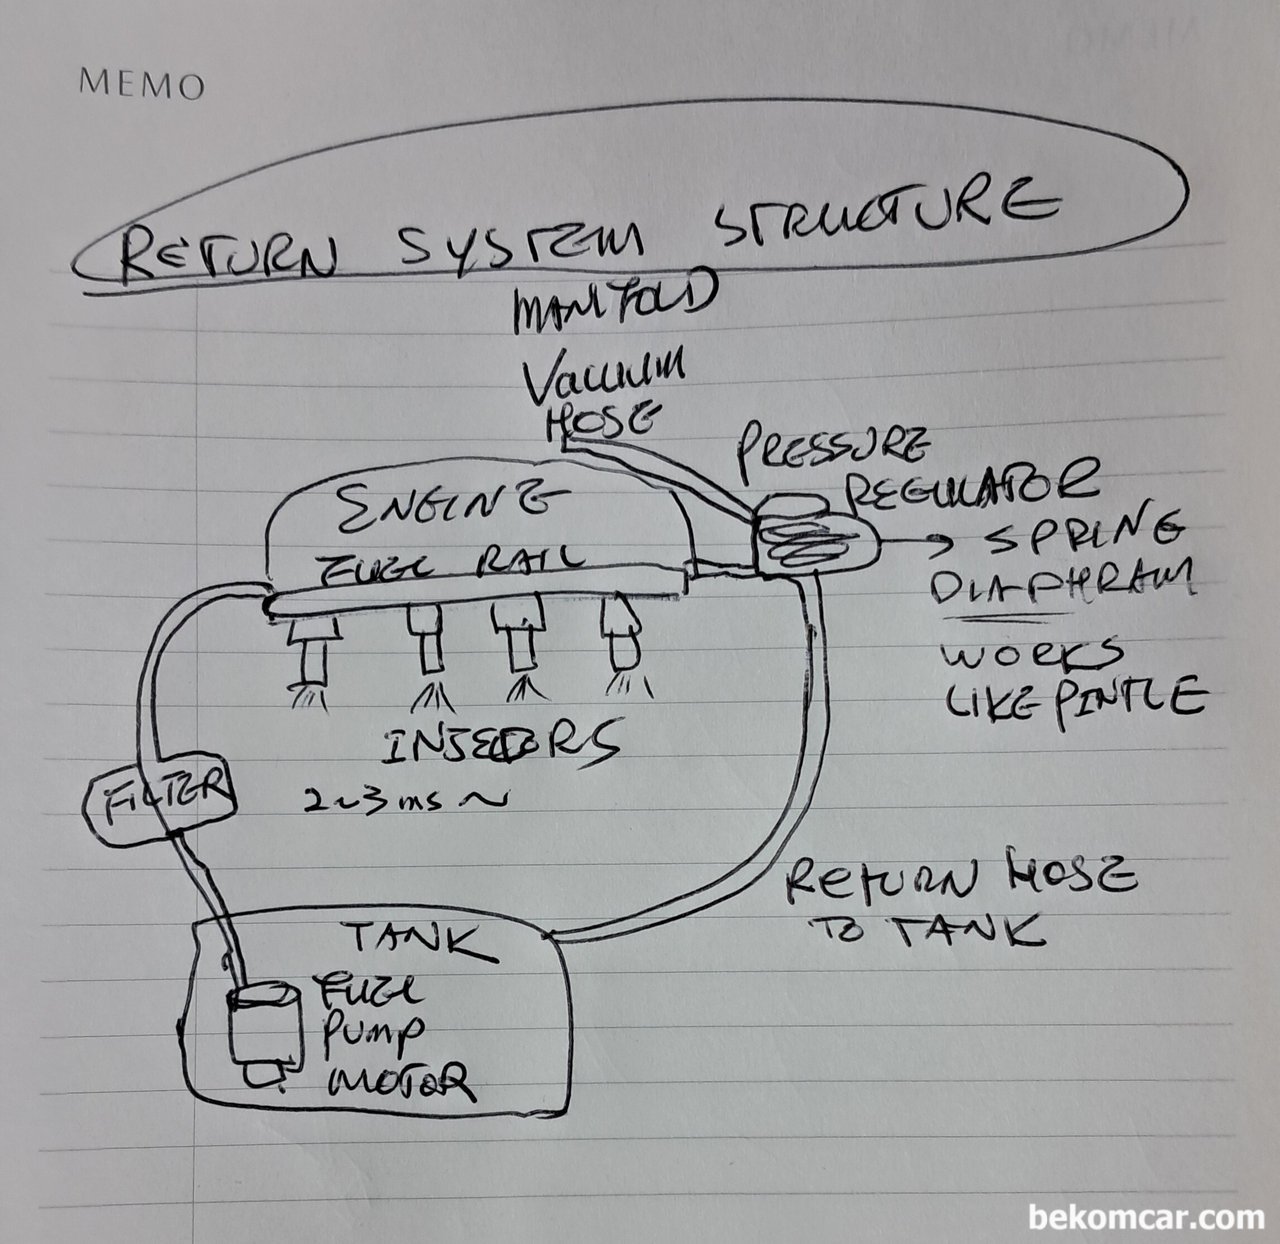 MEMO
RETURN SYSTEM STRUCTURE
MANIFOLD
Vacuum
HOSE
PRESSURE
REGULATOR
ENGINE
FUEL RAIL
SPRING
DIAPHRAM
WORKS
LIKE PINTLE
INJECTORS
2~3ms ~
FILTER
RETURN HOSE
TO TANK
TANK
FUEL
PUMP
MOTOR
bekomcar.com